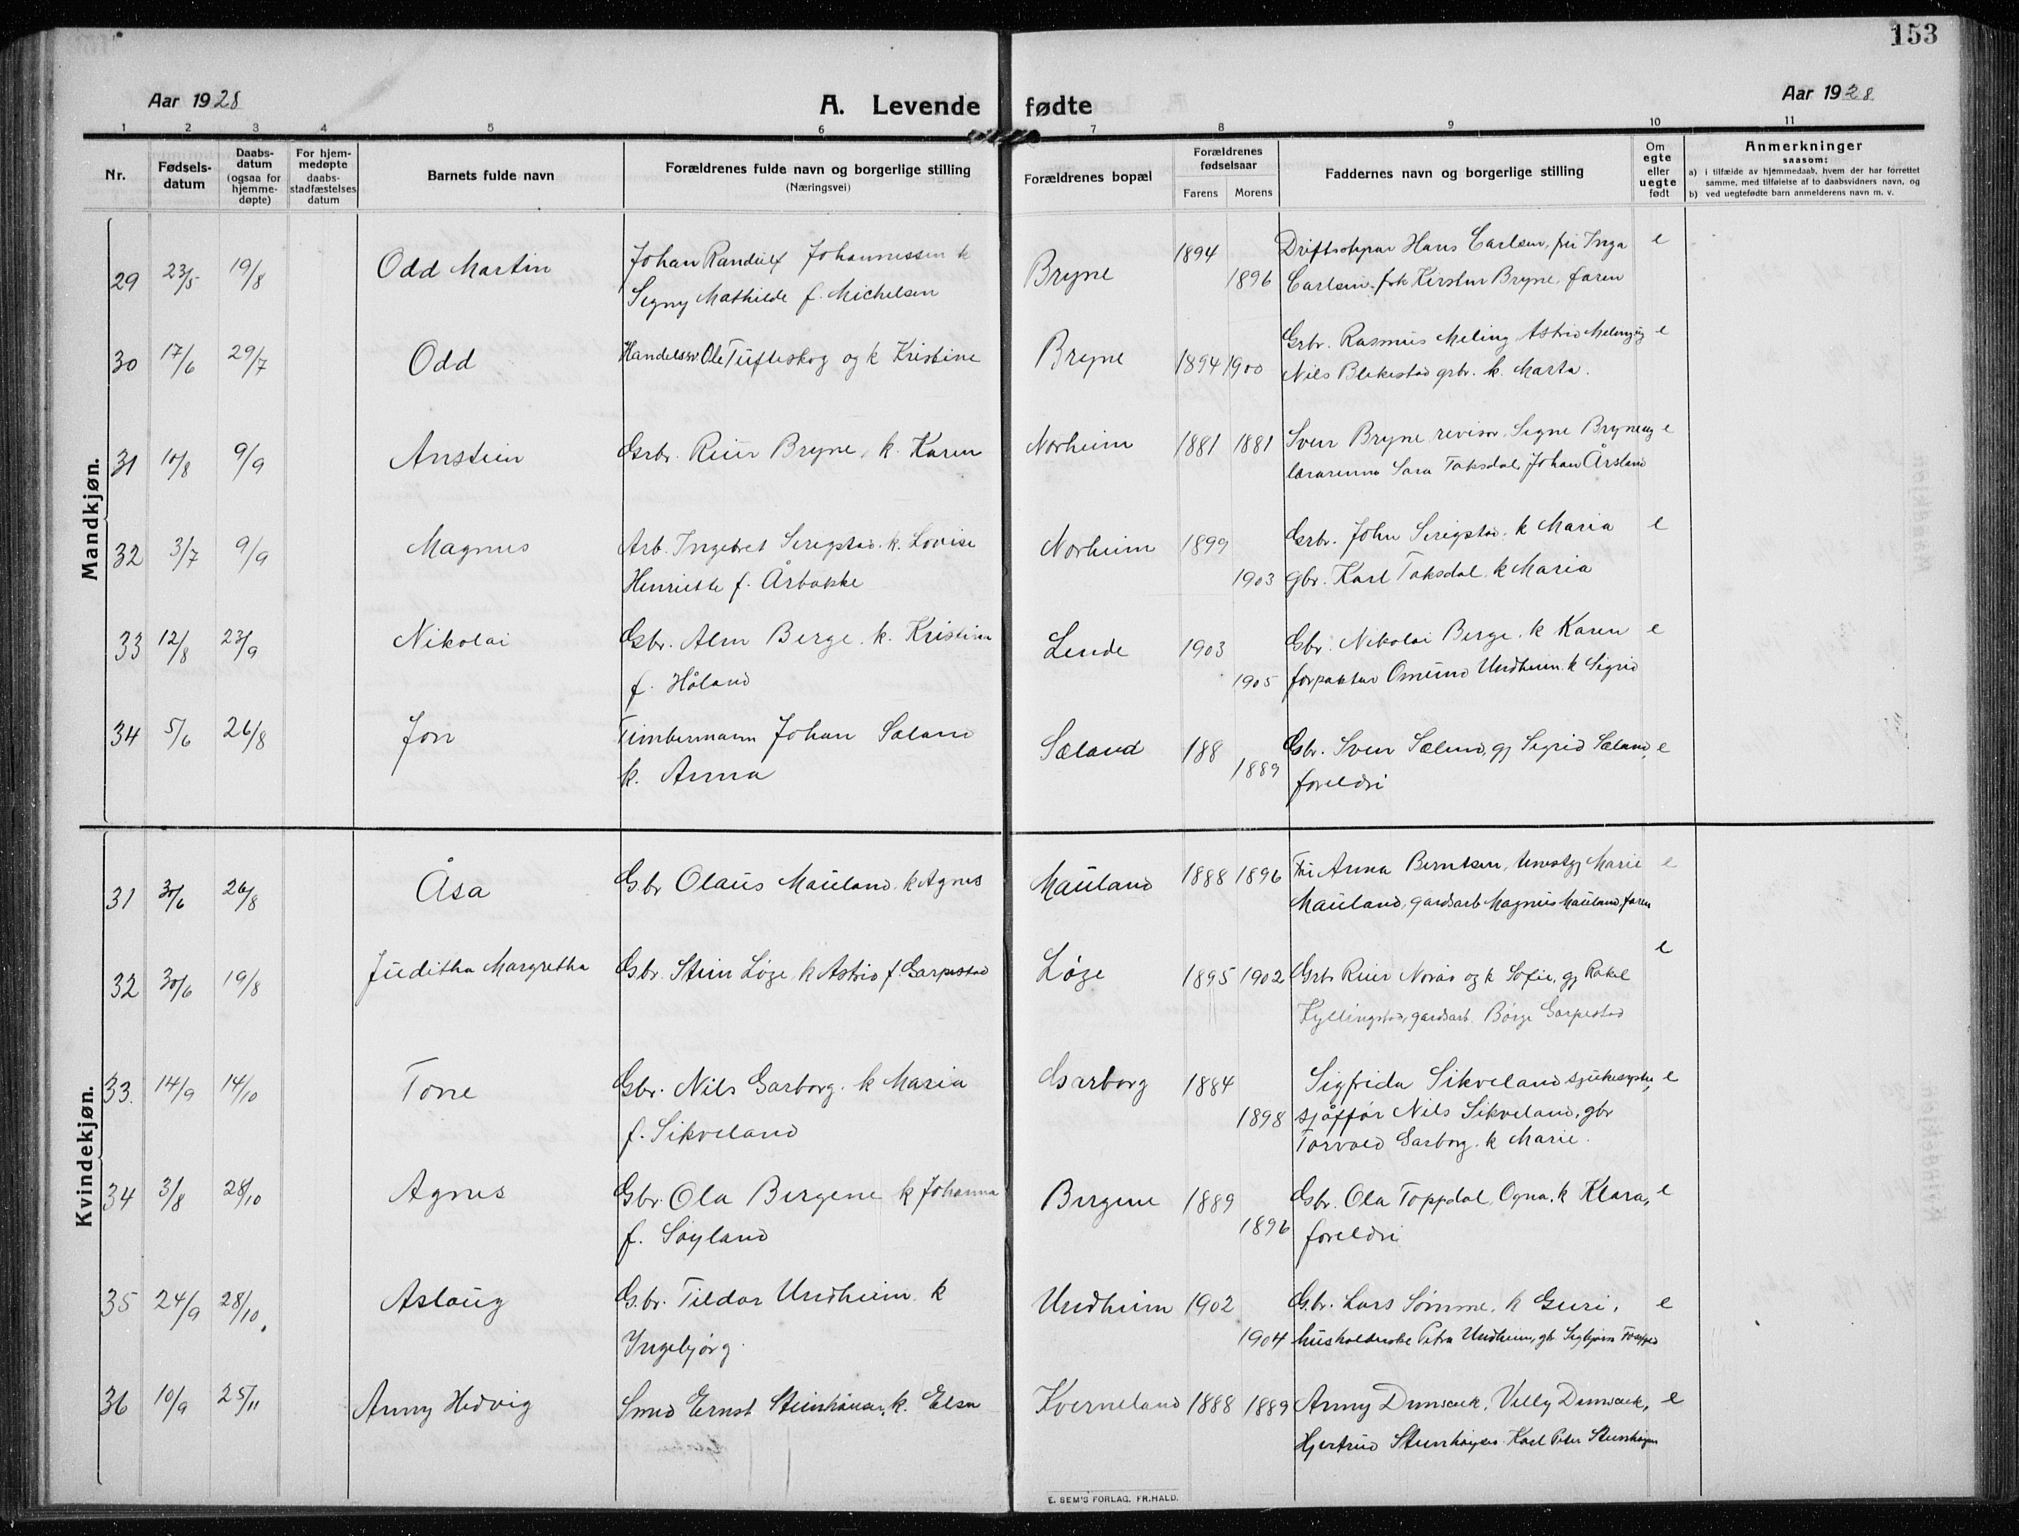 153
Aar 1928 A. Levende fødte Aar 1928
1 2 3 4 5 6 7 8 9 10 11
Nr.
Fødsels-
datum
Daabs-
datum
(ogsaa for
hjemme-
døpte)
For hjem-
medøpte
daabs-
stadfæstelses
datum
Barnets fulde navn
Forældrenes fulde navn og borgerlige stilling
(Næringsvei)
Forældrenes bopæl
Forældrenes
fødselsaar
Farens Morens
Faddernes navn og borgerlige stilling
Om
egte
eller
uegte
født
Anmerkninger
saasom:
a) i tilfælde av hjemmedaab, hvem der har forrettet
samme, med tilføielse af to daabsvidners navn, og
b) ved uegtefødte barn anmelderens navn m. v.
Mandkjøn.
29 23/5 19/8 Odd Martin Johan Randulf Johannessen k Bryne 1894 Driftsbstyrar Hans Carlsen, fru Inga e
Signy Mathilde f. Michelsen 1896 Carlsen, frk Kirsten Bryne, faren
30 17/6 29/7 Odd Handelsv. Ole Tufteskog og k Kristine Bryne 1894 1900 Grbr. Rasmus Meling, Astrid Meling og e
Nils Blikestad grbr. k. Marta.
31 10/8 9/9 Anstein Grbr. Reier Bryne, k. Karen Norheim 1881 1881 Sven Bryne, revisor, Signe Bryne og e
lærarinna Sara Taksdal, Johan Årsland
32 3/7 9/9 Magnus Arb. Ingebret Serigstad. k. Lovise Norheim 1899 Grbr. John Serigstad. k Maria e
Henriette f. Årbakke 1903 gbr. Karl Taksdal, k Maria
33 12/8 23/9 Nikolai Gbr. Alm Berge. k. Kristine Lende 1903 Gbr. Nikolai Berge. k Karen e
f. Håland 1905 forpaktar Omund Undheim. k Sigrid
34 5/6 26/8 Jon Timbermann Johan Sæland Sæland 188 Gbr. Sven Sælend, gj Sigrid Sæland, e
k. Anna 1889 foreldri
Kvindekjøn.
31 30/6 26/8 Åsa Gbr Olaus Mauland. k Agnes Mauland 1888 1896 Fru Anna Berntsen, tenestgj Marie e
Mauland, gardsarb Magnus Mauland, faren
32 30/6 19/8 Juditha Margretha Gbr. Stein Løge k Astrid f. Garpestad Løge 1895 1902 Grbr Reier Norås og k Sofie, gj Rakel e
Kyllingstad, gardsarb. Børge Garpestad
33 14/9 14/10 Tone Gbr. Nils Garborg. k Maria Garborg 1884 Sigfrida Sikveland sjukesyster, e
f. Sikveland 1898 sjåffør Nils Sikveland, gbr
Torvald Garborg. k Marie.
34 3/8 28/10 Agnes Gbr. Ola Bergene k Johanna Bergene 1889 Gbr. Ola Toppdal, Ogna. k Klara, e
f. Søyland 1896 foreldri
35 24/9 28/10 Aslaug G.br. Tildar Undheim k Undheim 1902 G.br. Lars Sømme. k Guri, e
Ingebjørg. 1904 husholderske Petra Undheim, gbr Sigbjørn
36 10/9 25/11 Anny Hedvig Smed Ernst Steinhäuser, k. Elsa Kverneland 1888 1889 Anny Dunsæk, Villy Dunsæk, e
Hjertrud Steinhäuser Karl Peter
E. SEM'S FORLAG. FR.HALD.